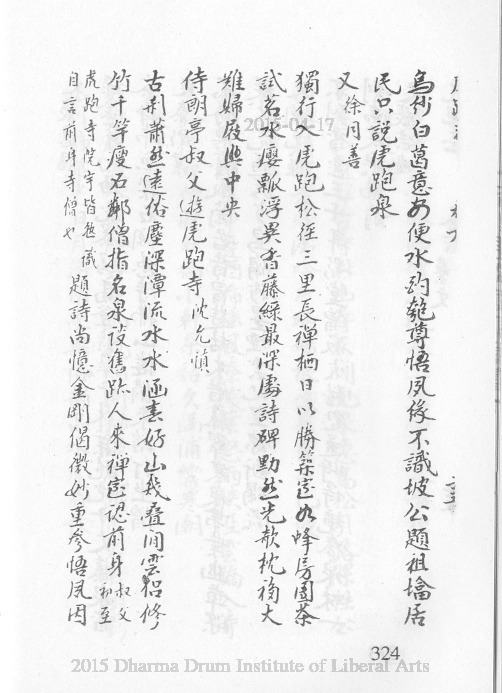 烏紗白葛意如便水酌匏尊悟夙後不識坡公題祖塔居
民只說虎跑泉
又徐同善
獨行入虎跑松徑三里長禪栖日以勝築室如蜂房園茶
試茗水癭瓢浮異香藤綠最深處詩碑黝然光欹枕稱大
難歸展興中央
侍朗亭叔父遊虎跑寺沈允慎
古剎蕭然遠俗塵深潭流水水涵春好山幾疊閒雲侶修
竹千竿瘦石鄰僧指名泉設舊跡人來禪室認前身叔父初至
虎跑寺院宇皆熟識自言前身寺僧也題詩尚憶金剛偈微妙重參悟夙因
324
2015-04-17
2015 Dharma Drum Institute of Liberal Arts